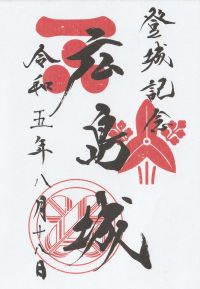 登城記念
広島城
令和五年八月十八日